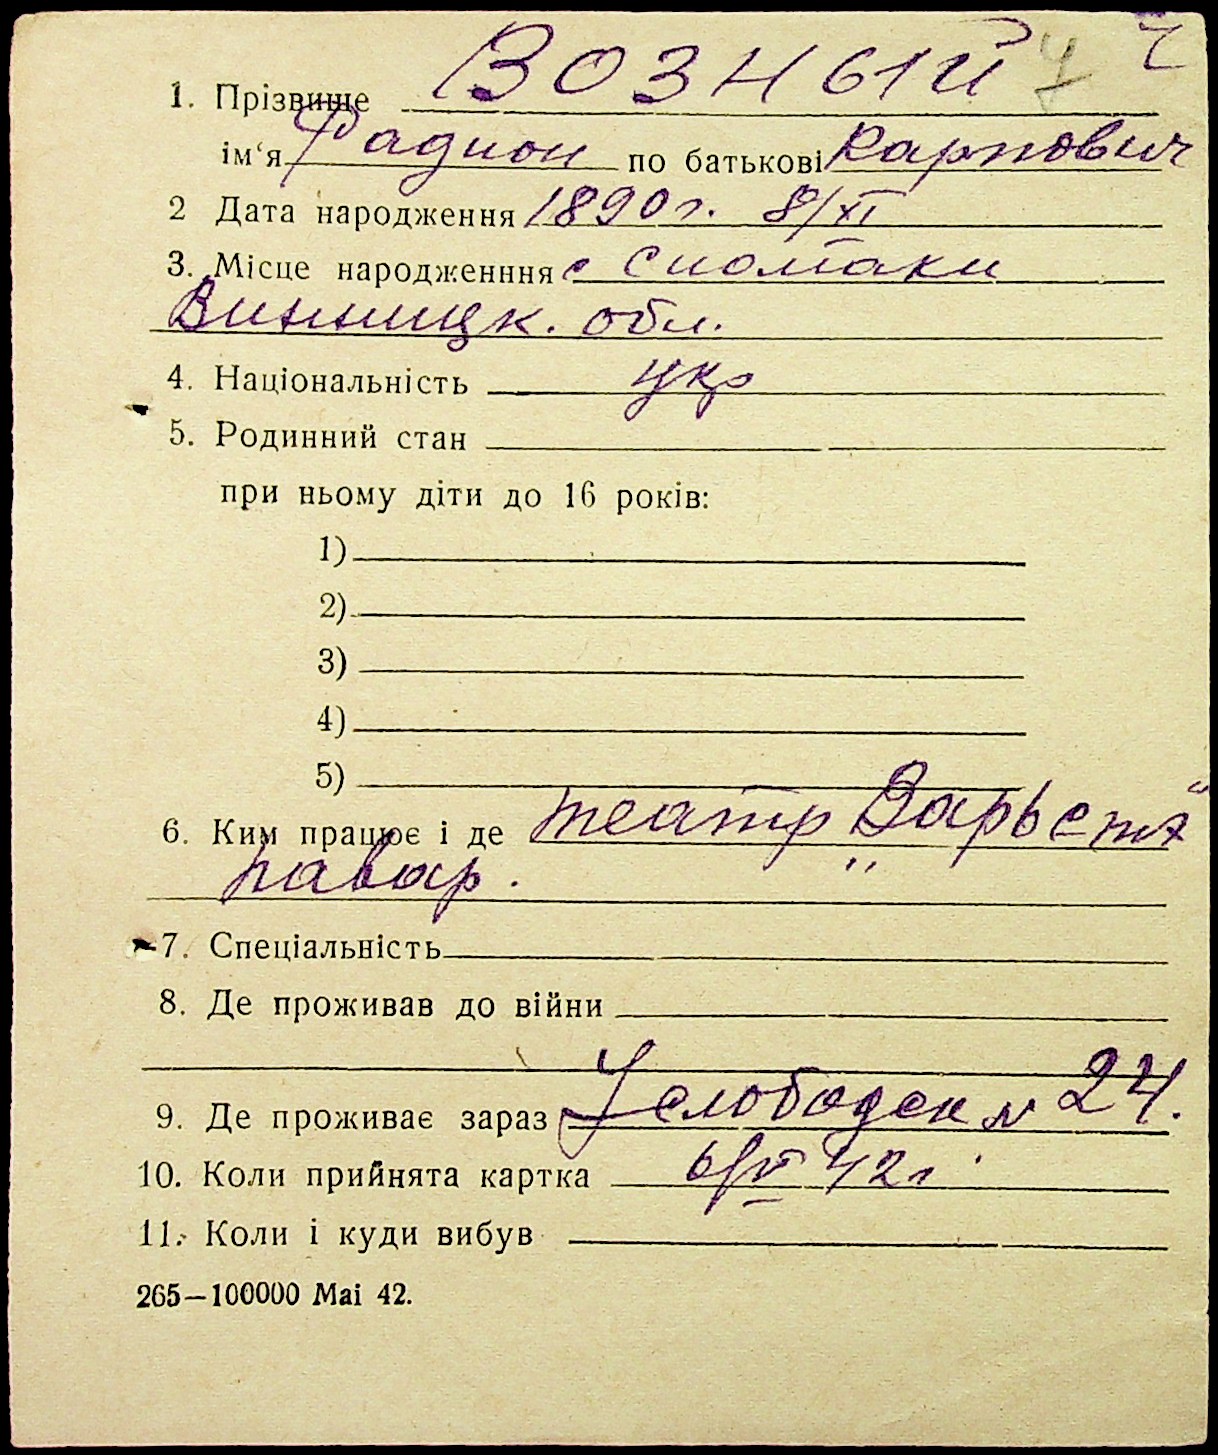 1. Прізвище Возный
ім'я Радион по батькові Карпович
2 Дата народження 1890 г. 8/XI
3. Місце народженння с
Винницк. обл.
4. Національність укр
5. Родинний стан
при ньому діти до 16 років:
1)
2)
3)
4)
5)
6. Ким працює і де театр „Варьетэ"
павар.
7. Спеціальність
8. Де проживав до війни
9. Де проживає зараз 24.
10. Коли прийнята картка 42 г
11. Коли і куди вибув
265—100000 Mai 42.